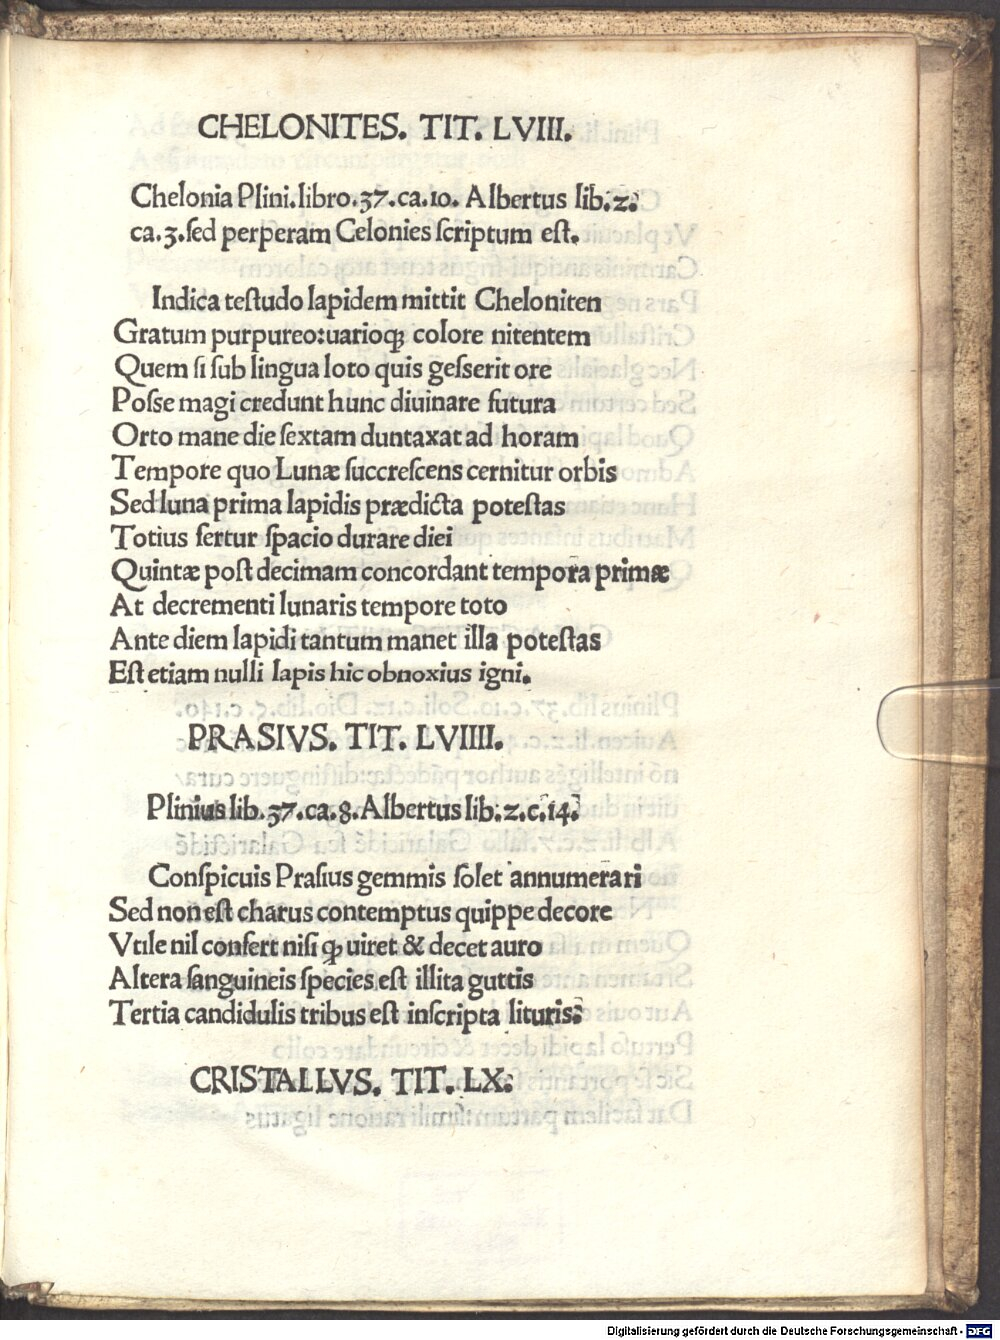 CHELONITES. TIT. LVIII.
Chelonia Plini.libro.37.ca.10. Albertus lib.2.
ca.3.ſed perperam Celonies ſcriptum eſt.
Indica teſtudo lapidem mittit Cheloniten
Gratum purpureo:uarioqꝫ colore nitentem
Quem ſi ſub lingua loto quis geſſerit ore
Poſſe magi credunt hunc diuinare futura
Orto mane die ſextam duntaxat ad horam
Tempore quo Lunæ ſuccreſcens cernitur orbis
Sed luna prima lapidis prædicta poteſtas
Totius fertur ſpacio durare diei
Quintæ poſt decimam concordant tempora primæ
At decrementi lunaris tempore toto
Ante diem lapidi tantum manet illa poteſtas
Eſt etiam nulli lapis hic obnoxius igni.
PRASIVS. TIT. LVIIII.
Plinius lib.37.ca.8.Albertus lib.2.c.14.
Conſpicuis Praſius gemmis ſolet annumerari
Sed non eſt charus contemptus quippe decore
Vtile nil confert niſi qꝫ uiret & decet auro
Altera ſanguineis ſpecies eſt illita guttis
Tertia candidulis tribus eſt inſcripta lituris.
CRISTALLVS. TIT. LX.
Digitalisierung gefördert durch die Deutsche Forschungsgemeinschaft - DFG